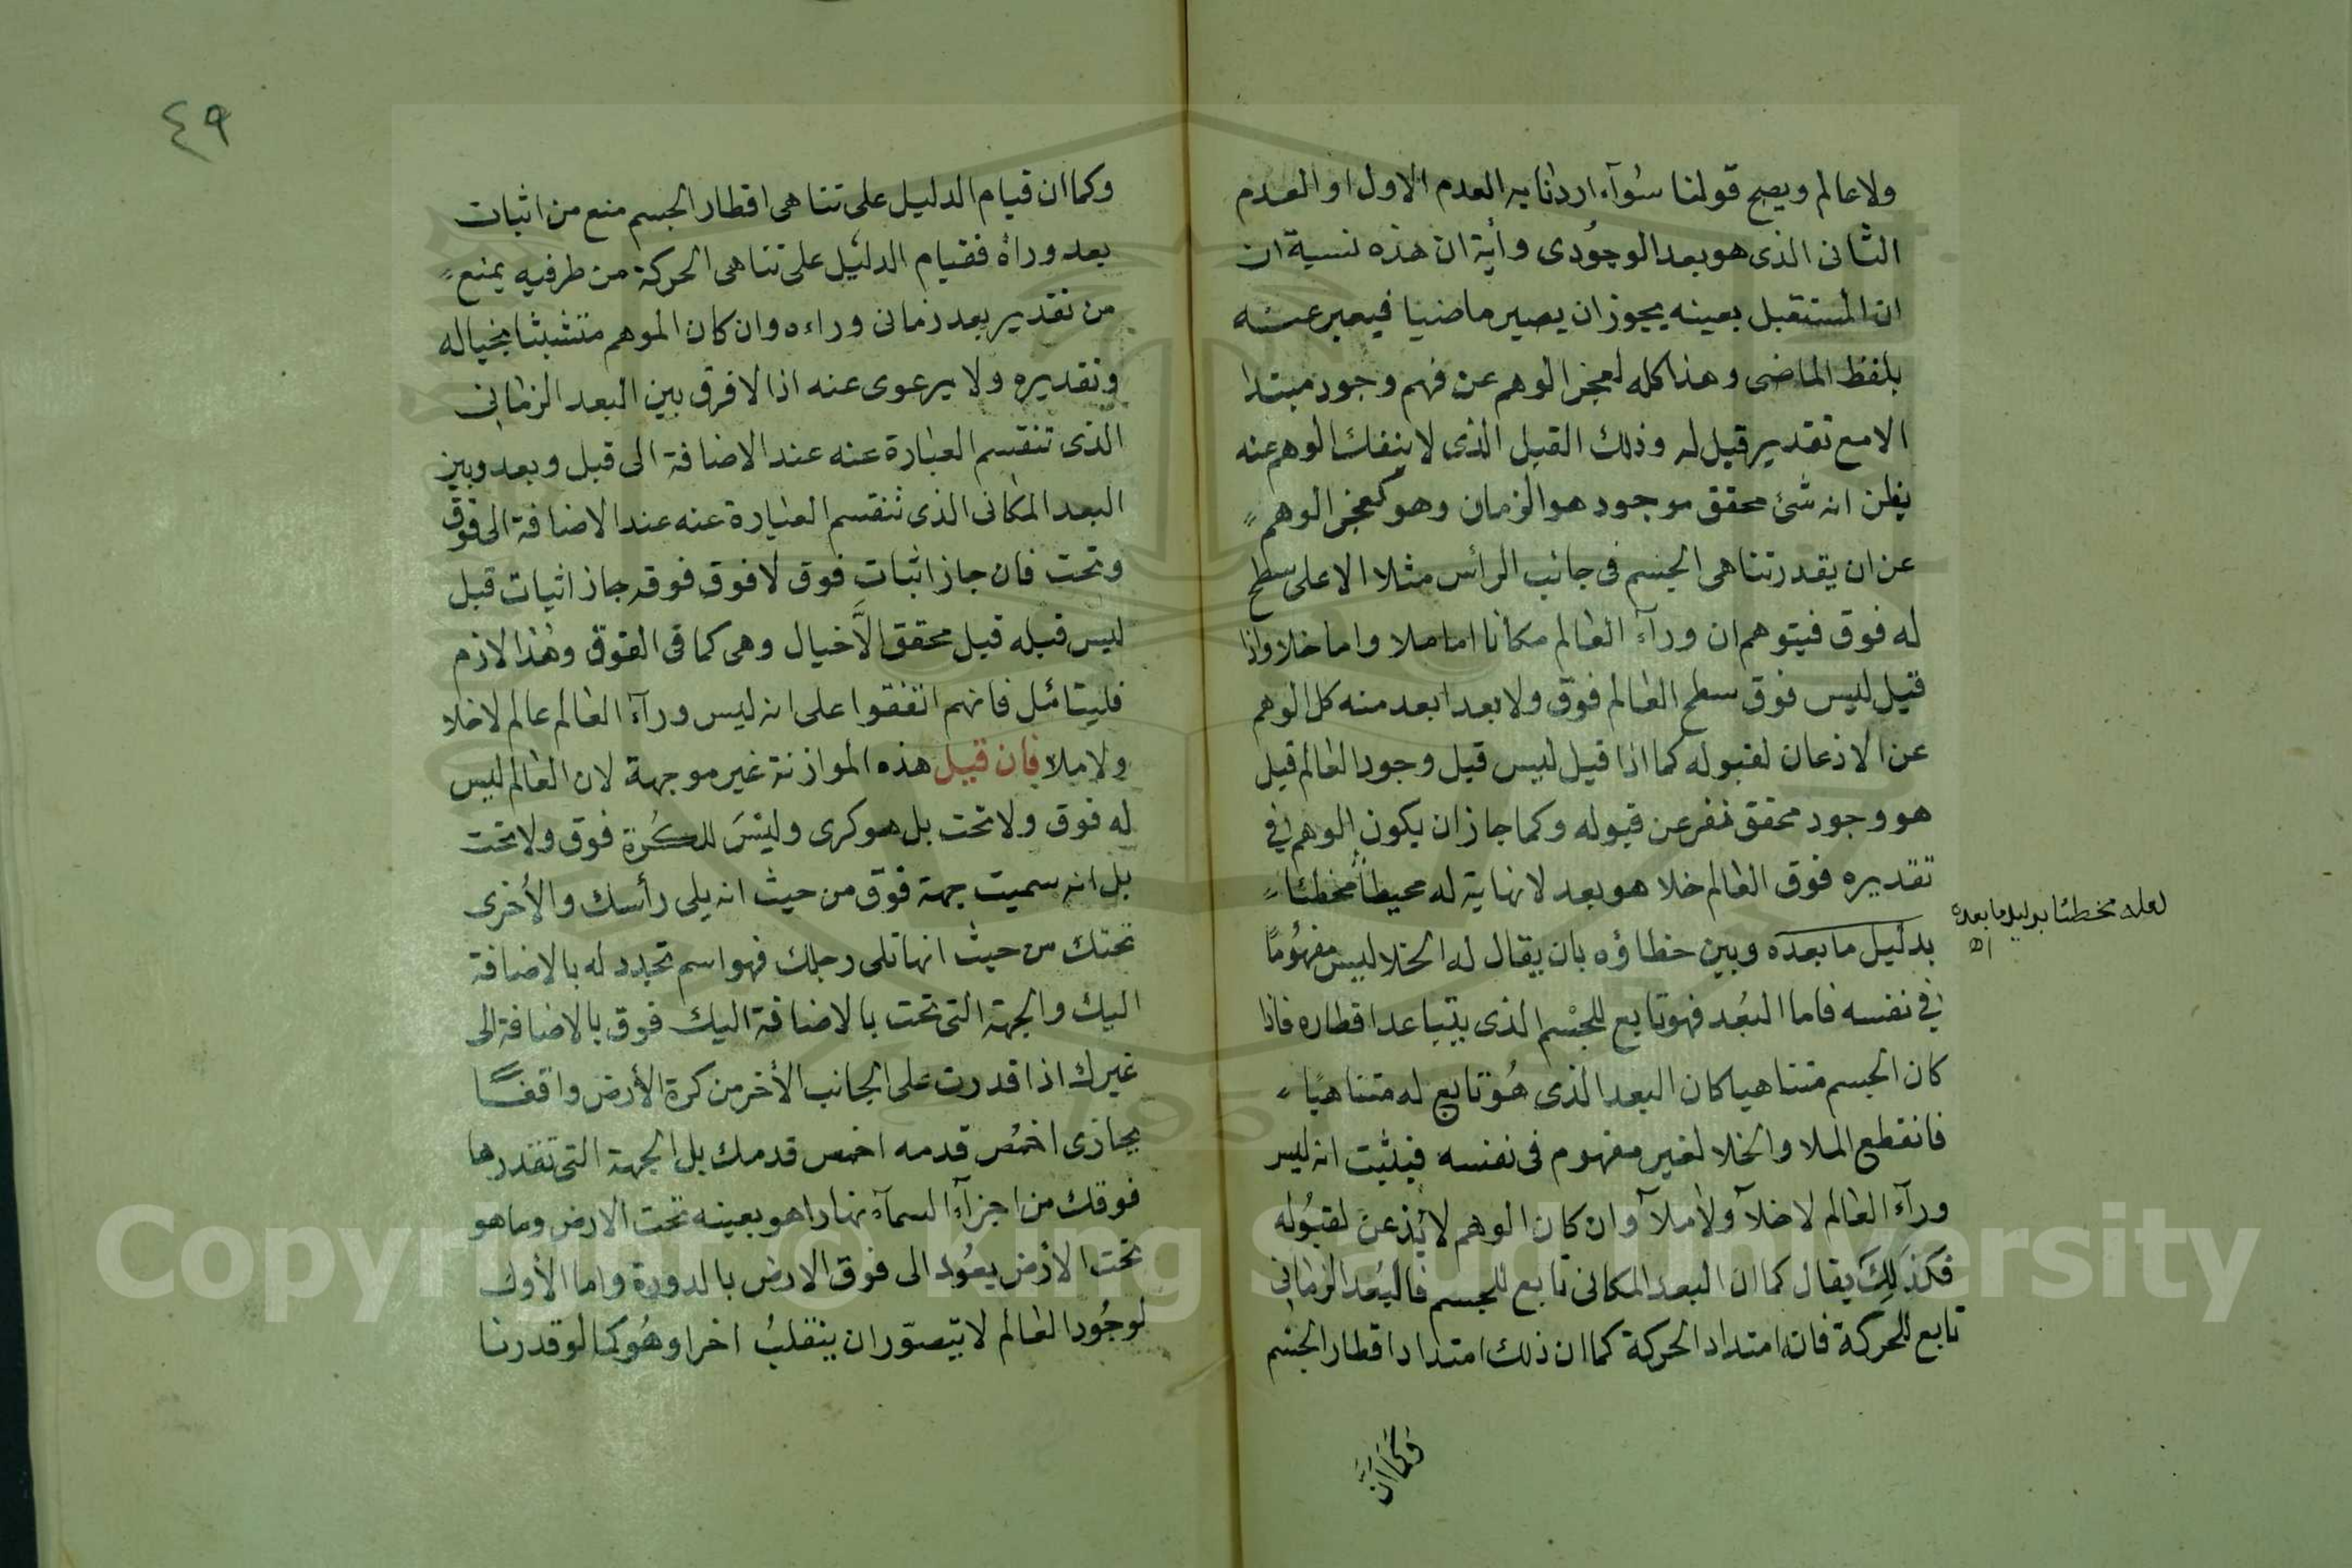 ولا عالم ويصح قولنا سوآء اردنا به العدم الاول او العدم
الثانى الذى هو بعد الوجودى وأية ان هذه نسبة ان
ان المستقبل بعينه يجوز ان يصير ماضيا فيعبر عنه
بلفظ الماضى وهذا كله لعجز الوهم عن فهم وجود مبتدا
الا مع تقدير قبل له وذلك القبل الذى لا ينفك الوهم عنه
يظن انه شئ محقق موجود هو الزمان وهو كعجز الوهم
عن ان يقدر تناهى الجسم فى جانب الرأس مثلا الا على سطح
له فوق فيتوهم ان ورآء العالم مكانا اما ملا واما خلا واذا
قيل ليس فوق سطح العالم فوق ولا بعد ابعد منه كل الوهم
عن الاذعان لقبوله كما اذا قيل ليس قبل وجود العالم قبل
هو وجود محقق نفر عن قبوله وكما جاز ان يكون الوهم فى
تقديره فوق العالم خلا هو بعد لا نهاية له محيطاً مخطئا
بدليل ما بعده وبين خطاؤه بان يقال له الخلا ليس مفهوما
فى نفسه فاما البعد فهو تابع للجسم الذى يتباعد اقطاره فاذا
كان الجسم متناهيا كان البعد الذى هو تابع له متناهيا
فانقطع الملا والخلا لغير مفهوم فى نفسه فيثبت انه ليس
ورآء العالم لا خلآ ولا ملآ وان كان الوهم لا يذعن لقبوله
فكذلك يقال كما ان البعد المكانى تابع للجسم فالبعد الزمانى
تابع للحركة فانه امتداد الحركة كما ان ذلك امتداد اقطار الجسم
وكما ان
لعله مخطئا بدليل ما بعده
اه
٤٩
وكما ان قيام الدليل على تناهى اقطار الجسم منع من اثبات
بعد وراه فقيام الدليل على تناهى الحركة من طرفيه يمنع
من تقدير بعد زمانى وراءه وان كان الموهم متشبثا بخياله
وتقديره ولا يرعوى عنه اذ لا فرق بين البعد الزمانى
الذى تنقسم العبارة عنه عند الاضافة الى قبل وبعد وبين
البعد المكانى الذى تنقسم العبارة عنه عند الاضافة الى فوق
وتحت فان جاز اثبات فوق لا فوق فوقه جاز اثبات قبل
ليس قبله قبل محقق الا خيال وهى كما فى الفوق وهذا لازم
فليتامل فانهم اتفقوا على انه ليس ورآء العالم عالم لا خلا
ولا ملا فان قيل هذه الموازنة غير موجهة لان العالم ليس
له فوق ولا تحت بل هو كرى وليس للكرة فوق ولا تحت
بل انه سميت جهة فوق من حيث انه يلى رأسك والاخرى
تحتك من حيث انها تلى رجلك فهو اسم تجدد له بالاضافة
اليك والجهة التى تحت بالاضافة اليك فوق بالاضافة الى
غيرك اذا قدرت على الجانب الأخر من كرة الأرض واقفا
يحاذى اخمص قدمه اخمص قدمك بل الجهة التى تقدرها
فوقك من اجزآء السمآء نهارا هو بعينه تحت الارض وما هو
تحت الارض يعود الى فوق الارض بالدورة واما الأول
لوجود العالم لا يتصور ان ينقلب اخرا وهو كما لو قدرنا
Copyright © King Saud University
1957